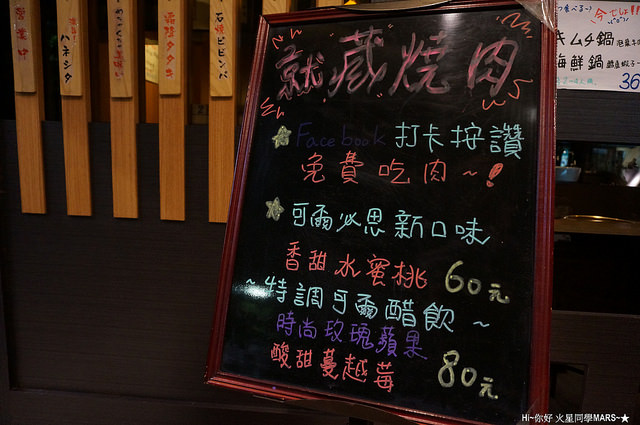 営業中
ハネシタ
めこくの美味
霜降タタキ
石焼ビビンパ
就藏燒肉
Facebook 打卡按讚
免費吃肉~!
可爾必思新口味
香甜水蜜桃 60元
~特調可爾醋飲~
時尚玫瑰蘋果
酸甜蔓越莓 80元
キムチ鍋
海鮮鍋
36
Hi~你好 火星同學MARS~★